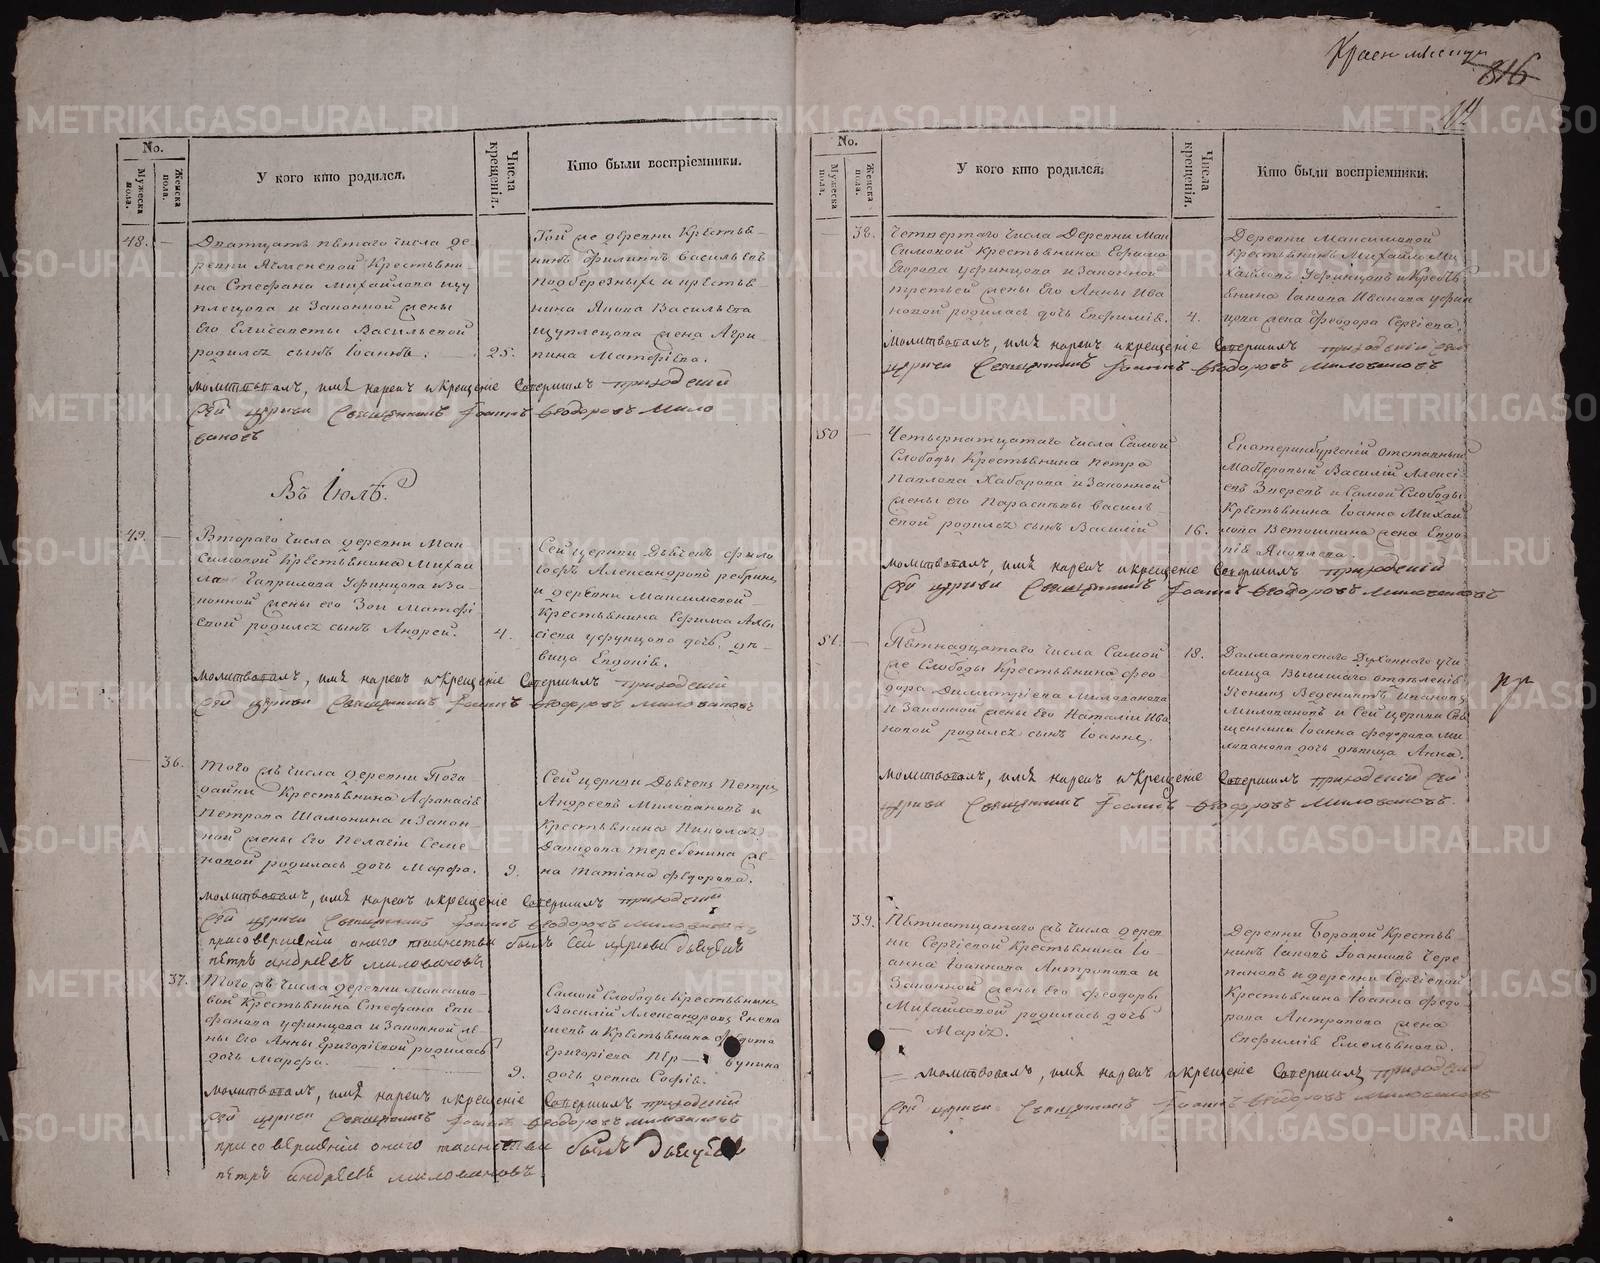 Красн
316
14
No.
Мужеска пола.
Женска пола.
У кого кто родился.
Числа крещенія.
Кто были воспріемники.
48.
Дватцать пятаго числа де-
ревни Ячменевой Крестьяни-
на Стефана Михайлова щу
плецова и Законной жены
Его Елисаветы Васильевой
родился сынъ Іоаннъ.
25.
Той же деревни Крестья-
нинъ Филиппъ Васильевъ
Подберезныхъ и крестья-
нина Васильева
щуплецова жена Агри-
пина Матфіева.
молитвовалъ, имя нарекъ и крещеніе Совершилъ приходскій
Сей церкви Священникъ Іоаннъ Феодоровъ Мило
вановъ
Въ Іюлѣ.
49.
Втораго числа деревни Мак
симовой Крестьянина Михаи
ла Гаврилова Уфинцова и За-
конной жены его Зои Матфі-
евой родился сынъ Андрей.
4.
Сей церкви Дьячекъ Фило
софъ Александровъ
и деревни Максимовой
Крестьянина Ефима Алек
сіева уфинцова дочь дѣ-
вица Евдокія.
молитвовалъ, имя нарекъ и крещеніе Совершилъ приходскій
Сей церкви Священникъ Іоаннъ Феодоровъ Миловановъ
36.
Того жъ числа деревни Пога
дайки Крестьянина Афанасія
Петрова Шамонина и Закон-
ной жены Его Пелагіи Семе-
новой родилась дочь Марфа.
9.
Сей церкви Дьячекъ Петръ
Андреевъ Миловановъ и
Крестьянина Николая
Давидова Теребенина же-
на Татіана Федорова.
молитвовалъ, имя нарекъ и крещеніе Совершилъ приходскій
Сей церкви Священникъ Іоаннъ Феодоровъ Миловановъ
при совершеніи онаго таинства былъ Сей церкви дьячекъ
петръ андреевъ миловановъ
37.
Того жъ числа деревни Максимо-
вой Крестьянина Стефана Епи-
фанова уфинцова и Законной же-
ны Его Анны Григоріевой родилась
дочь Марфа.
9.
Самой Слободы Крестьянинъ
Василій Александровъ
и Крестьянина Федота
Григоріева
дочь девка Софія.
молитвовалъ, имя нарекъ и крещеніе Совершилъ приходскій
Сей церкви Священникъ Іоаннъ Феодоровъ миловановъ
при совершеніи онаго таинства былъ Дьячекъ
петръ андреевъ миловановъ.
No.
Мужеска пола.
Женска пола.
У кого кто родился.
Числа крещенія.
Кто были воспріемники.
38.
Четвертаго числа Деревни Мак
симовой Крестьянина Ефима
Егорова уфинцова и Законной
третьей жены Его Анны Ива
новой родилась дочь Евфимія.
4.
Деревни Максимовой
Крестьянинъ Михайло Ми
хайловъ Уфинцовъ и Крестья
янина Іакова Иванова уфин
цова жена Феодора Сергіева.
молитвовалъ, имя нарекъ и крещеніе Совершилъ приходскій Сей
церкви Священникъ Іоаннъ Феодоровъ миловановъ
50
Четырнатцатаго числа Самой
Слободы Крестьянина Петра
Павлова Хабарова и Законной
жены его Параскевы Василь-
евой родился сынъ Василій
16.
Екатеринбургскій отставный
Мастеровый Василій Алексі-
евъ Зверевъ и Самой Слободы
Крестьянина Іоанна Михаи
лова Ветошкина жена Евдо-
кія Яковлева.
молитвовалъ, имя нарекъ и крещеніе Совершилъ приходскій
Сей церкви Священникъ Іоаннъ Феодоровъ миловановъ
51.
Пятнадцатаго числа Самой
же Слободы Крестьянина Фео
дора Димитріева Милованова
и Законной жены Его Наталіи Ива
новой родился сынъ Іоаннъ.
18.
Далматовскаго Духовнаго учи
лища Высшаго отдѣленія
Ученикъ Веденихтъ Ивановъ
Миловановъ и Сей церкви Свя
щенника Іоанна Федорова Ми
лованова дочь дѣвица Анна.
молитвовалъ, имя нарекъ и крещеніе Совершилъ приходскій Сей
церкви Священникъ Іоаннъ Феодоровъ Миловановъ.
39.
Пятнатцатаго жъ числа дерев
ни Сергіевой Крестьянина Іо-
анна Іоаннова Антропова и
Законной жены Его Феодоры
Михайловой родилась дочь
Марія.
Деревни Боровой Крестья
нинъ Іаковъ Іоанновъ Чере
пановъ и деревни Сергіевой
Крестьянина Іоанна Федо-
рова Антропова жена
Евфимія Емельянова.
молитвовалъ, имя нарекъ и крещеніе Совершилъ приходскій
Сей церкви Священникъ Іоаннъ Феодоровъ Миловановъ
METRIKI.GASO-URAL.RU